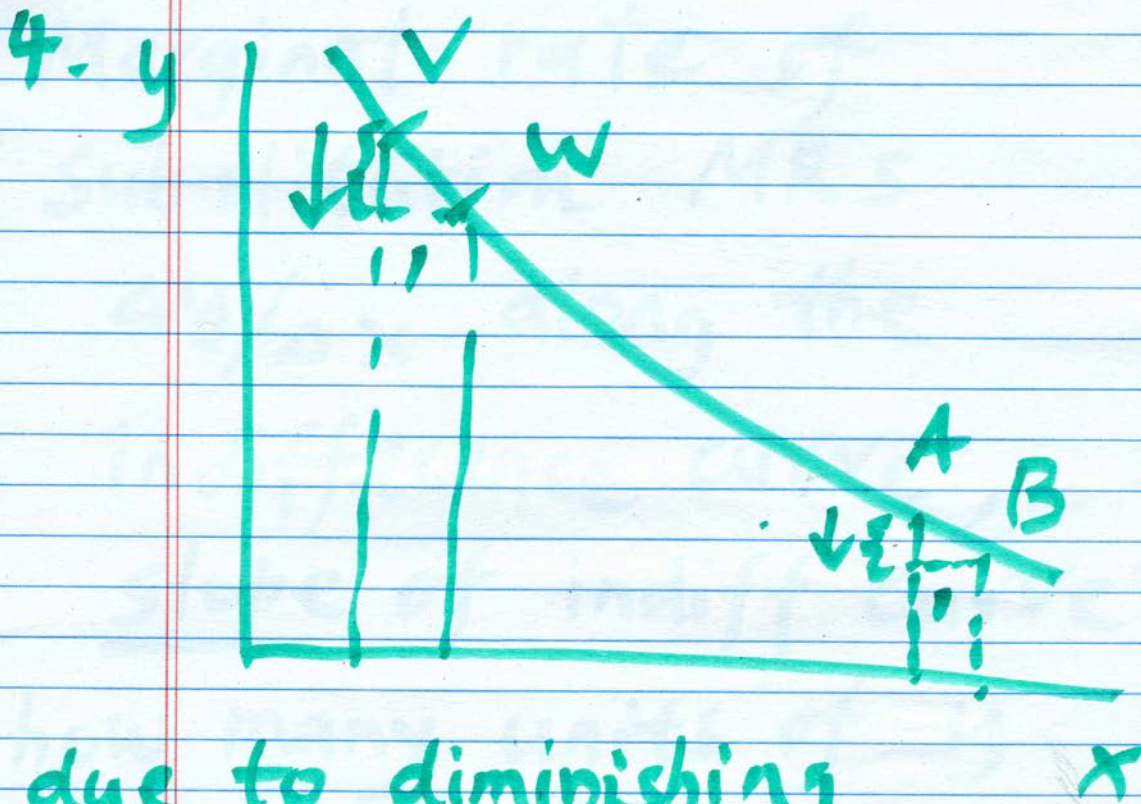 4. y
V
W
A
B
1
1
x
due to diminishing